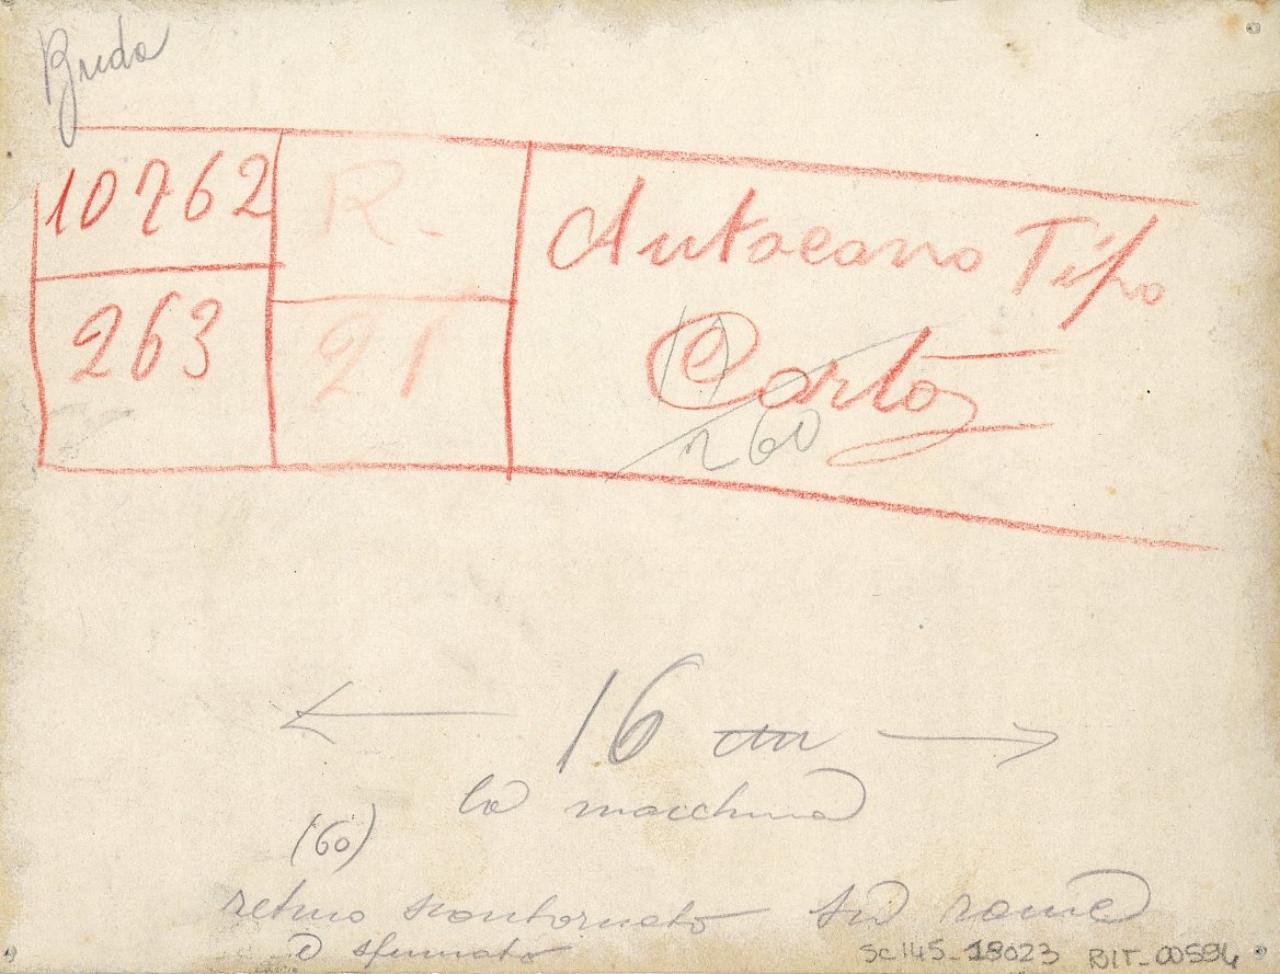 Breda
10762
R.
Autocarro Tipo
263
21
Corto
260
← 16 cm →
la macchina
(60)
retino scontornato su rame
e sfumato
SC I145_18023 RIT_00594